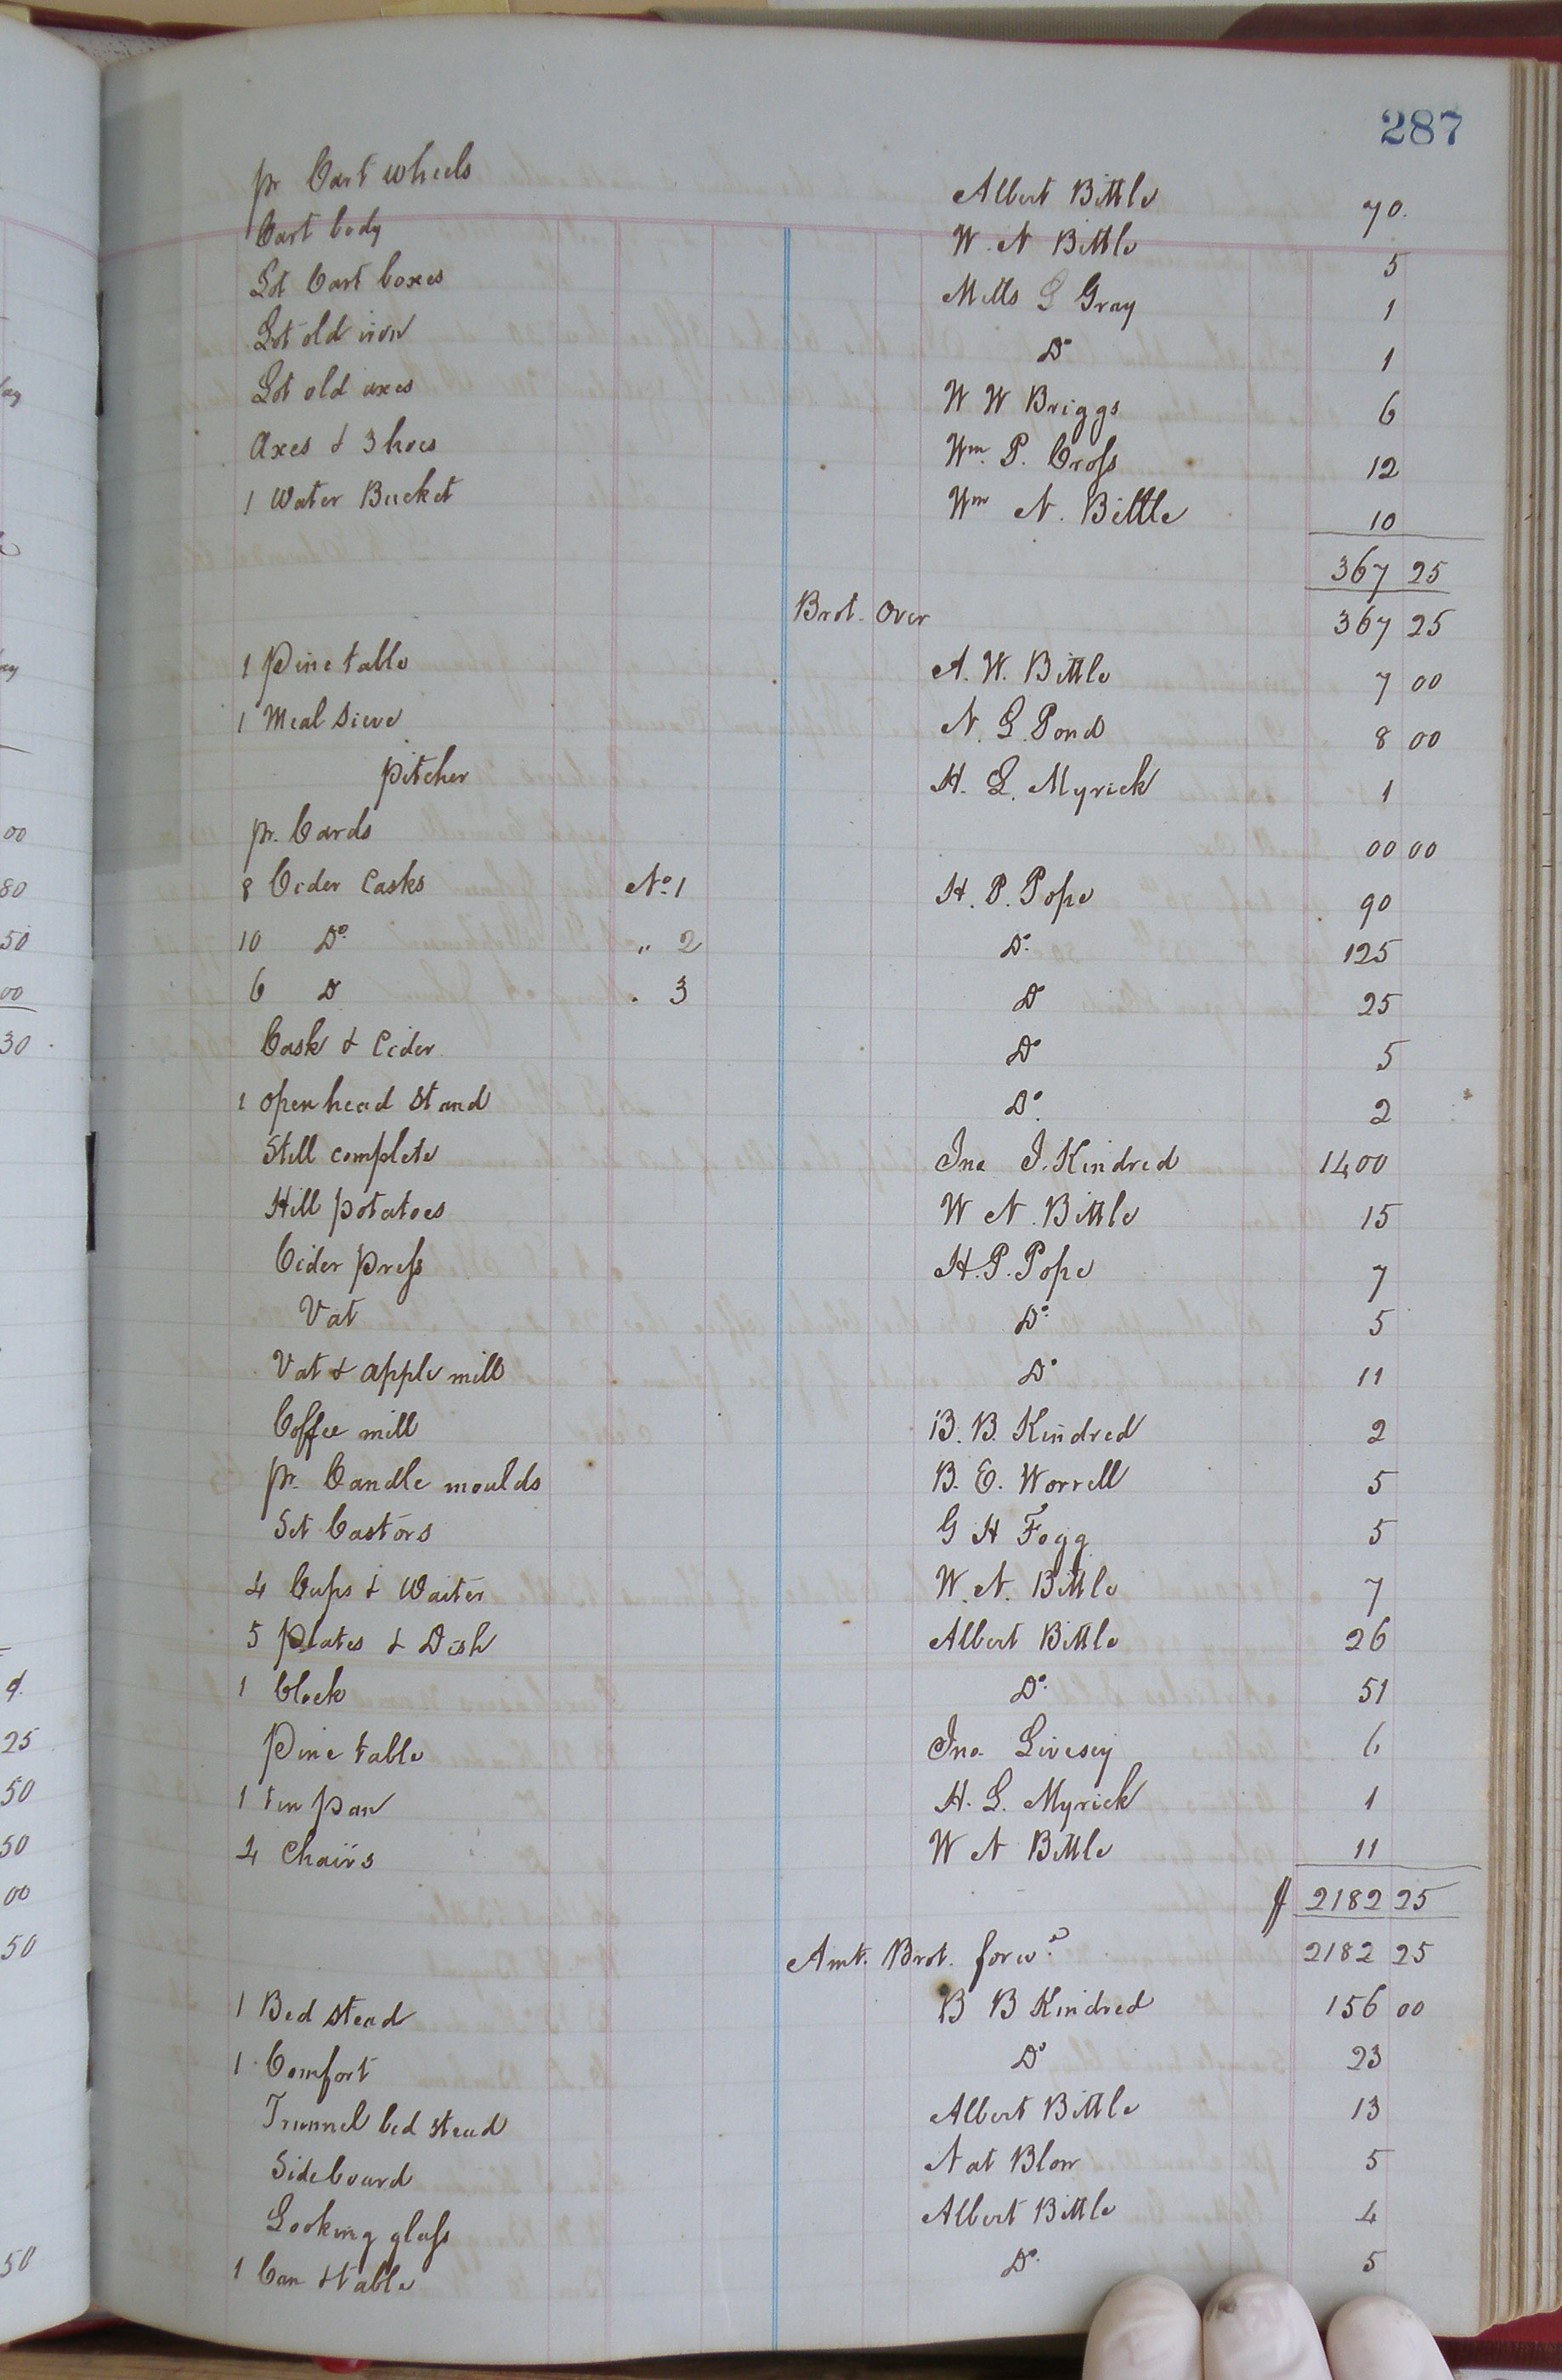 287
pr Cart wheels Albert Bittle 70.
Cart body W. N Bittle 5
Lot Cart boxes Mills L Gray 1
Lot old iron Do 1
Lot old axes W W Briggs 6
Axes & 3 hoes Wm. P. Cross 12
1 Water Bucket Wm N. Bittle 10
367 25
Brot. Over 367 25
1 Pine table A. W. Bittle 7 00
1 Meal Sieve N. G. Pond 8 00
pitcher H. L. Myrick 1
pr. Cards 00 00
8 Cider Casks No. 1 H. P. Pope 90
10 Do. " 2 D. 125
6 D . 3 D 25
Cask & Cider Do 5
1 open head Stand Do. 2
Still complete Jno J. Kindred 1400
Hill potatoes W N. Bittle 15
Cider Press H. P. Pope 7
Vat Do. 5
Vat & apple mill Do 11
Coffee mill B. B. Kindred 2
pr. Candle moulds B. E. Worrell 5
Set Castors G H Fogg 5
4 Cups & Waiter W. N. Bittle 7
5 plates & Dish Albert Bittle 26
1 Clock Do. 51
Pine table Jno. Livesey 6
1 tin pan H. L. Myrick 1
4 Chairs W N Bittle 11
$ 2182 25
Amt. Brot. forwd. 2182 25
1 Bed stead B B Kindred 156 00
1 Comfort Do 23
Trunnel bed stead Albert Bittle 13
Sideboard Nat Blow 5
Looking glass Albert Bittle 4
1 Can & table Do. 5
00
80
50
00
30
25
50
50
00
50
50